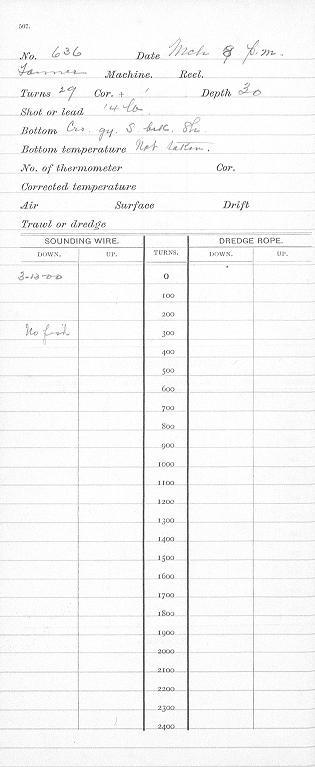 507.
No. 636 Date Mch 8 p.m.
Tanner Machine. Reel.
Turns 29 Cor. + 1 Depth 30
Shot or lead 14 lb
Bottom Crs. gy. S. brk. Sh.
Bottom temperature Not taken.
No. of thermometer Cor.
Corrected temperature
Air Surface Drift
Trawl or dredge
SOUNDING WIRE. TURNS. DREDGE ROPE.
DOWN. UP. DOWN. UP.
3-13-00 0
100
200
No fish 300
400
500
600
700
800
900
1000
1100
1200
1300
1400
1500
1600
1700
1800
1900
2000
2100
2200
2300
2400